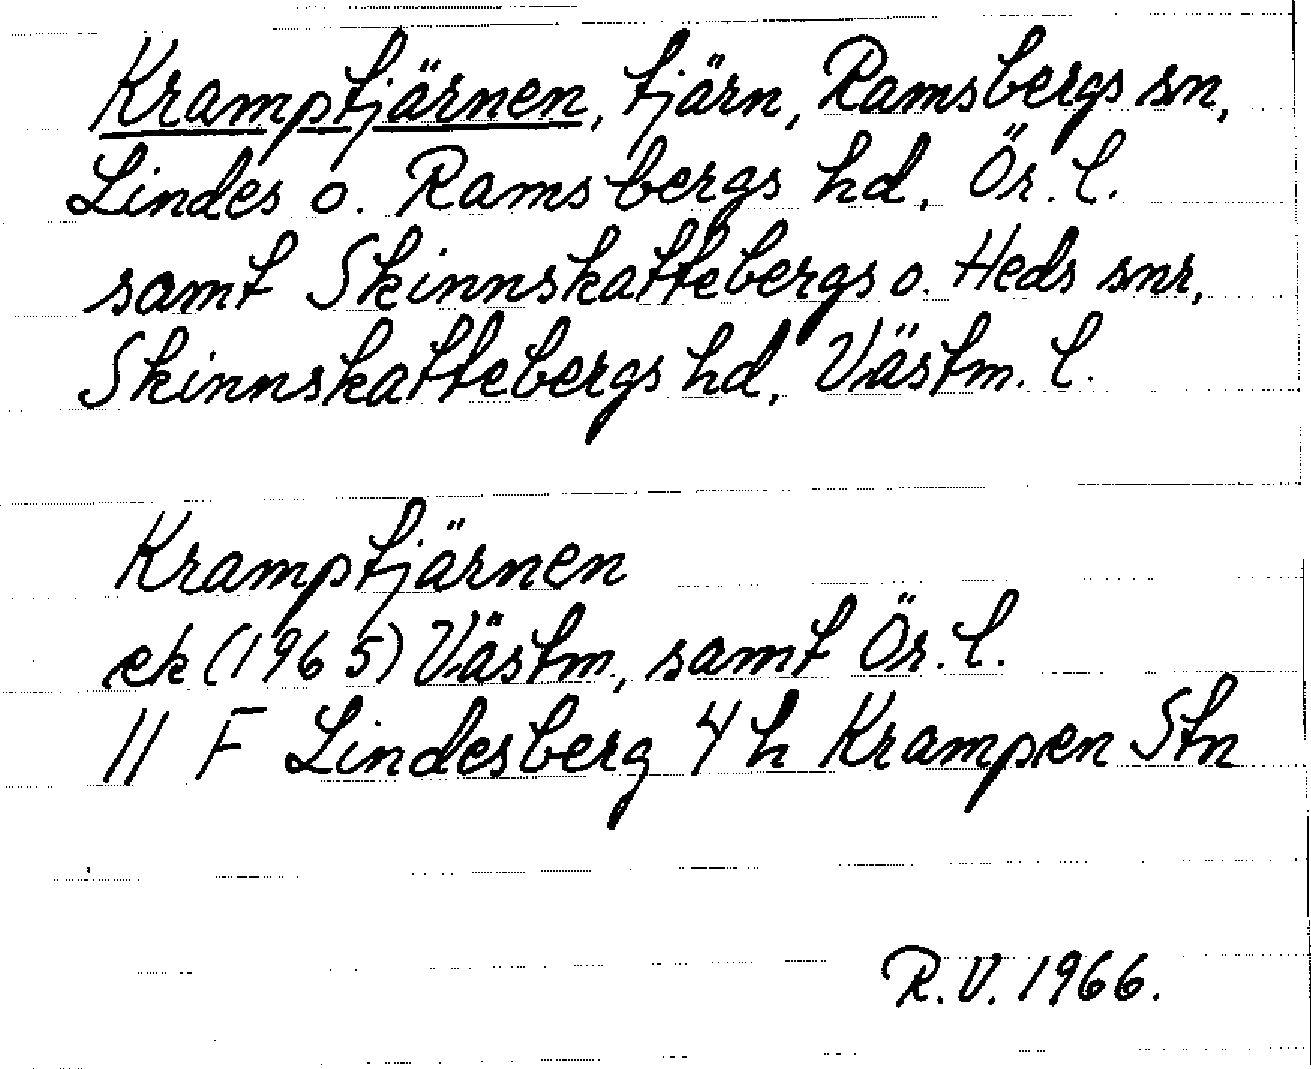 Kramptjärnen, tjärn, Ramsbergs sn,
Lindes o. Ramsbergs hd, Ör. l.
samt Skinnskattebergs o. Heds snr,
Skinnskattebergs hd, Västm. l.
Kramptjärnen
ek (1965) Västm, samt Ör. l.
11 F Lindesberg 4 h Krampen Stn
R.V. 1966.